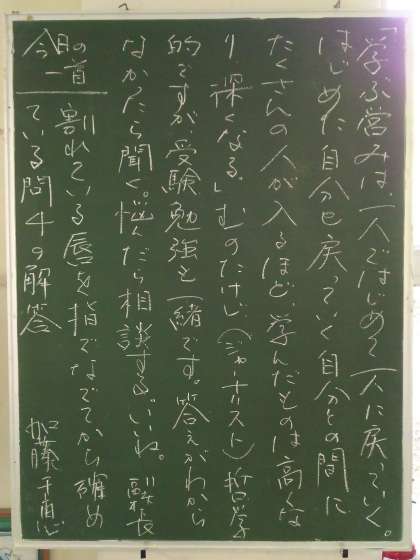 「学ぶ営みは、一人ではじめて一人に戻っていく。
はじめた自分と、戻っていく自分との間に
たくさんの人が入るほど、学んだものは高くな
り、深くなる。」むのたけじ（ジャーナリスト）哲学
的ですが受験勉強と一緒です。答えがわから
なかったら聞く。悩んだら相談する。いいね。 副校長
今日の一首
割れている唇を指でなでてから確め
ている問４の解答 加藤千恵